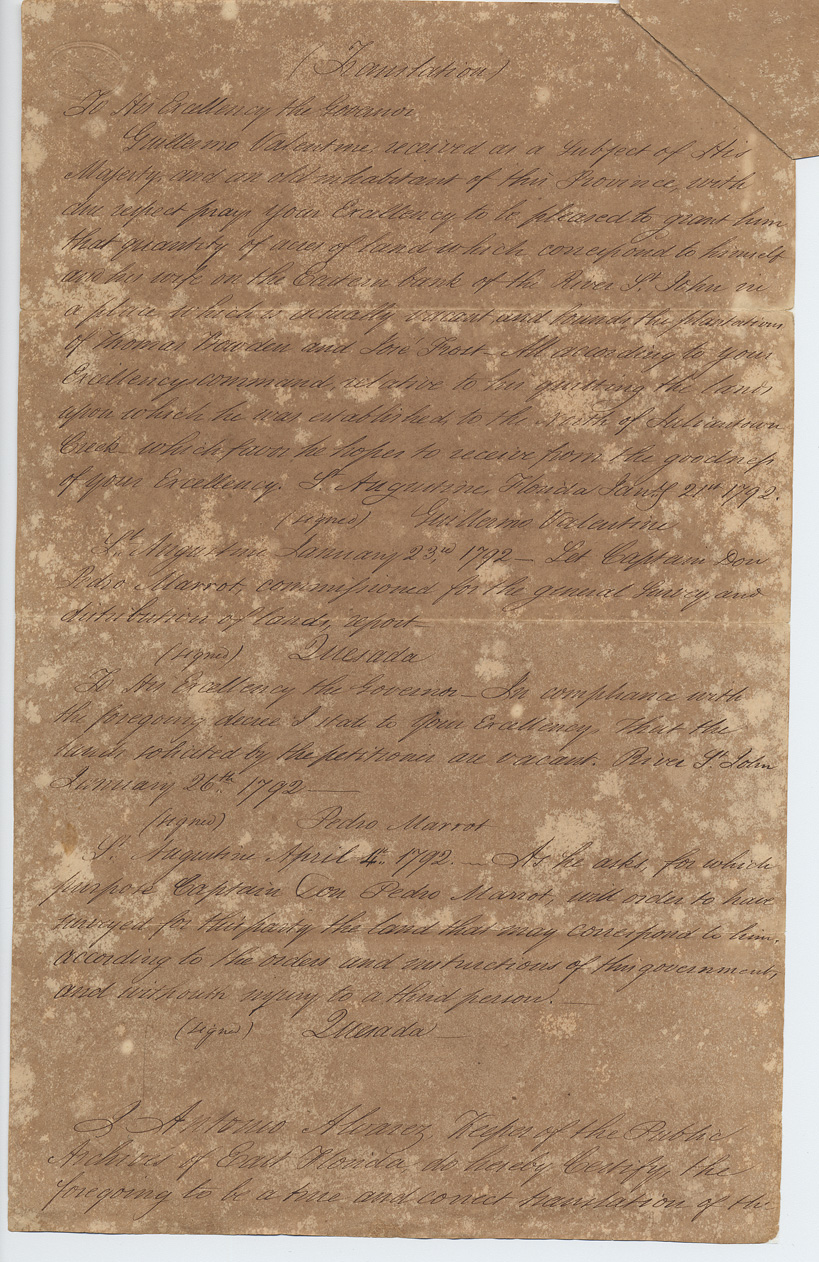 (Translation)
To His Excellency the Govenor
Guillermo Valentine received as a Subject of His
Majesty, and an old inhabitant of this Province, with
due respect prays Your Excellency to be pleased to grant him
that quantity of acres of land which correspond to himself
and his wife on the Eastern bank of the River St. John in
a place which is actually vacant and bounds the plantations
of Thomas Bowden and José Frost All according to your
Excellency's command, relative to his quitting the lands
upon which he was established, to the North of Julian town
Creek which favor he hopes to receive from the goodness
of your Excellency. St. Augustine, Florida Jany. 21st 1792.
(signed) Guillermo Valentine
St. Augustine January 23rd 1792 — Let Captain Don
Pedro Marrot, commissioned for the general survey and
distribution of lands, report
(signed) Quesada
To His Excellency the Governor — In compliance with
the foregoing decree I state to Your Excellency, that the
lands solicited by the petitioner are vacant. River St. John
January 26th 1792 —
(signed) Pedro Marrot
St. Augustine April 4th 1792. — As he asks, for which
purpose Captain Don Pedro Marrot, will order to have
surveyed for this party the land that may correspond to him,
according to the orders and instructions of this government,
and without injury to a third person. —
(signed) Quesada
I Antonio Alvarez Keeper of the Public
Archives of East Florida, do hereby Certify, the
foregoing to be a true and correct translation of the